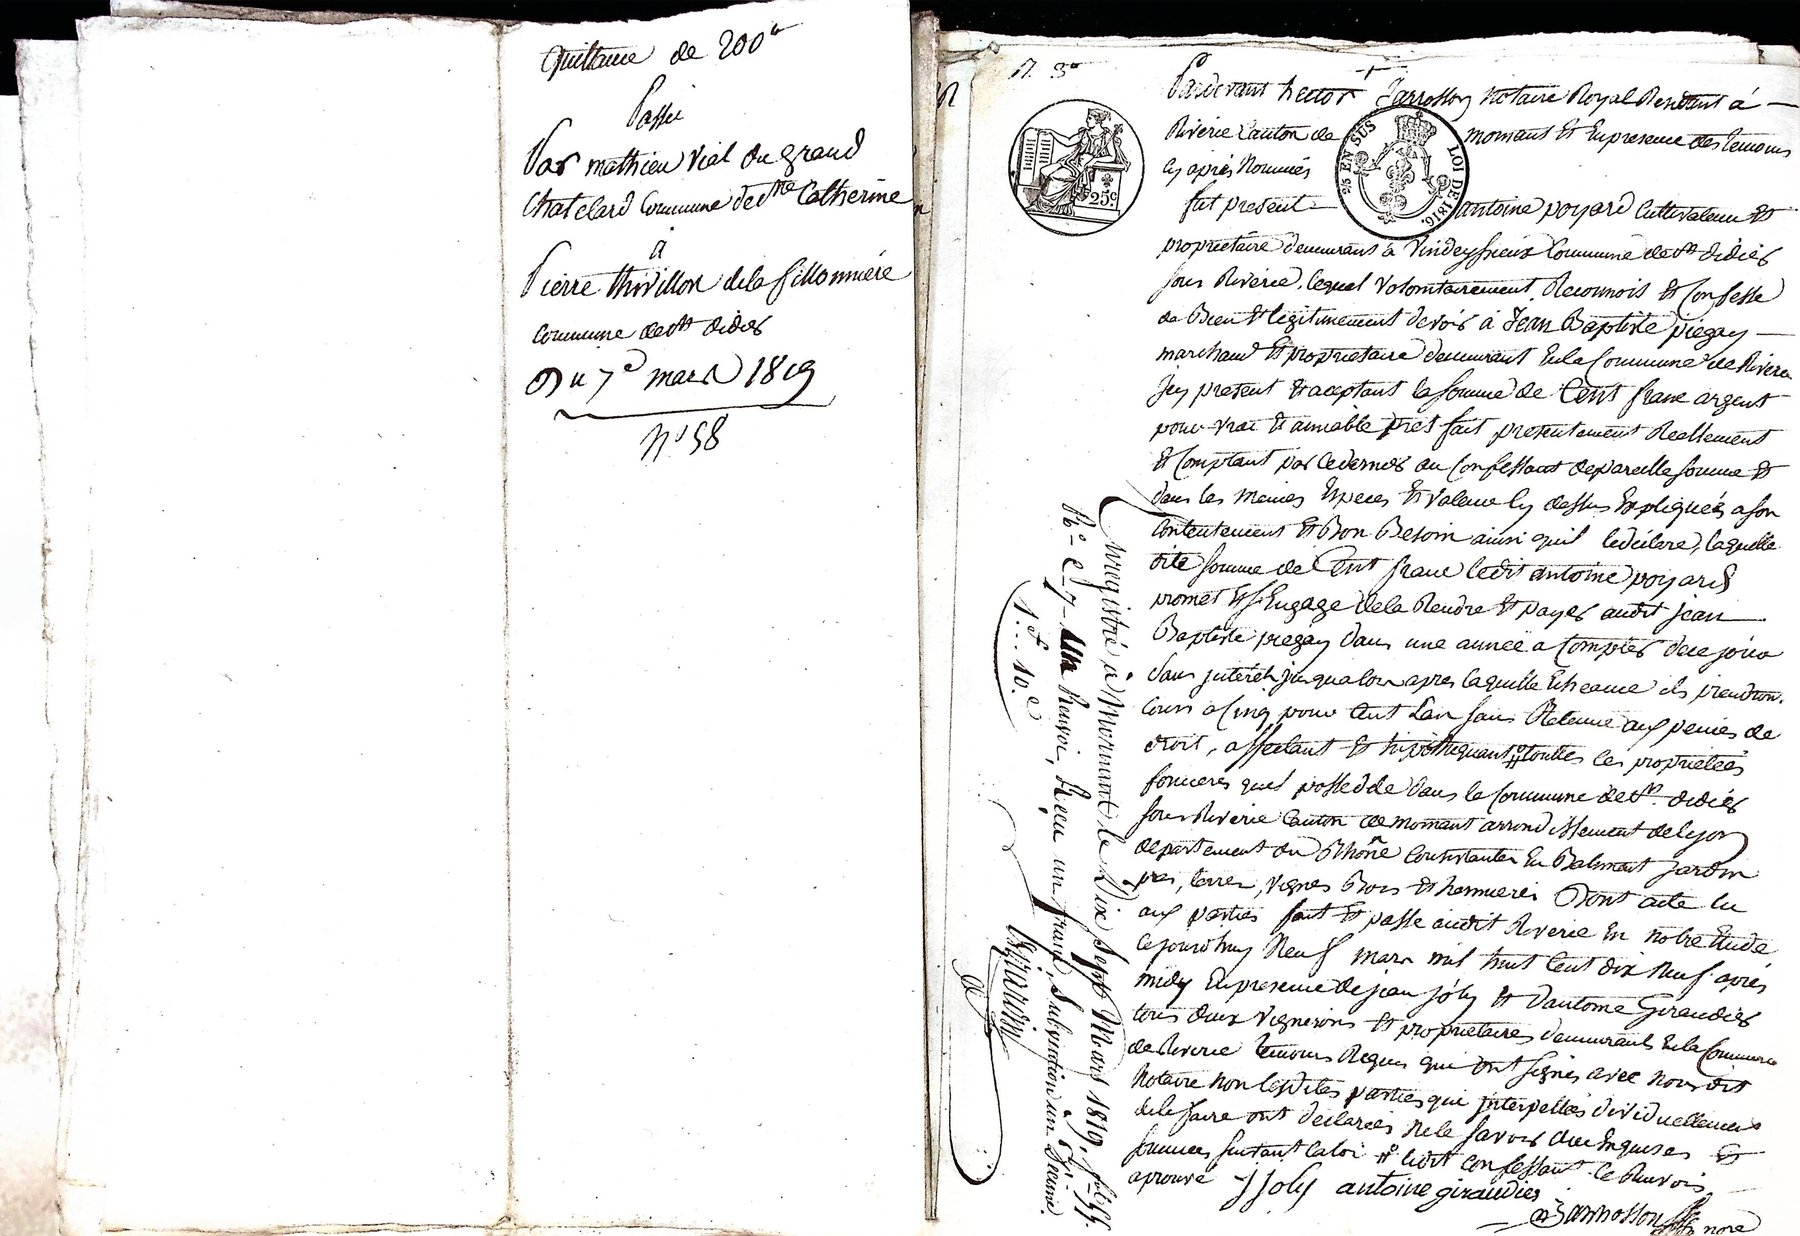 Quittance de 200#
Passée
Par mathieu vial du grand
Chatelard Commune de Ste Catherine
à
Pierre thivillon dela fillonnière
commune de St didier
Du 7e mars 1819
No 58
N. 3
Pardevant hector Jarrosson Notaire Royal Residant à
Riverie Canton de mornant Et En presence des temoins
Cy après Nommés
fut present antoine poyard Cultivateur Et
proprietaire demeurant à Vindeyssieux Commune de St didier
sous Riverie, lequel volontairement Reconnois Et Confesse
de Bien Et legitimement devoir à Jean Baptiste piegay
marchand Et proprietaire demeurant En la Commune de Riverie
Jcy present Et aceptant la somme de Cent franc argent
pour vrai Et amiable prêt fait presentement Reellement
Et Comptant par ce dernier au Confessant de pareille somme Et
dans les memes Especes Et valeur Cy dessus Expliqués a son
Contentement Et Bon Besoin ainsi quil le déclare, laquelle
dite somme de Cent franc ledit antoine poyard
promet Et s'Engage de la Rendre Et payer audit jean
Baptiste piegay dans une année a Compter de ce jour
sans jnterêt jusqualors apres laquelle Echeance ils prendron
Cours a Cinq pour Cent L'an sans Retenue aux peines de
droit, affectant Et hipothequant touttes les proprietées
foncieres quil possedde dans la Commune de St didier
sous Riverie Canton de mornant arrondissement de Lyon
departement du Rhône Consistantes En Batiment jardin
pres, terres, vignes Bois Et hermieres Dont acte lu
aux parties fait Et passé audit Riverie En notre Etude
Cejourdhuy Neuf mars mil huit Cent dix Neuf après
midy En presence de jean joly Et d'antoine Giraudier
tous deux vignerons Et proprietaires demeurants En la Commune
de Riverie temoins Requis qui ont signés avec nous dit
Notaire non lesdites parties qui jnterpellés dividuellement
de le faire ont declarées Ne le savoir duement Enquises Et
sommées suivant la loi # ledit confessant Ce Renvois
aprouvé j Joly antoine giraudier
Jarrosson nore
Enregistré à Mornant le Dix Sept Mars 1819, fol 55.
Ro C. 7. Un renvoi, Reçu un franc, Subvention un Décime.
1.f 10.c
Girardin
25.c
25 EN SUS
LOI DE 1816.